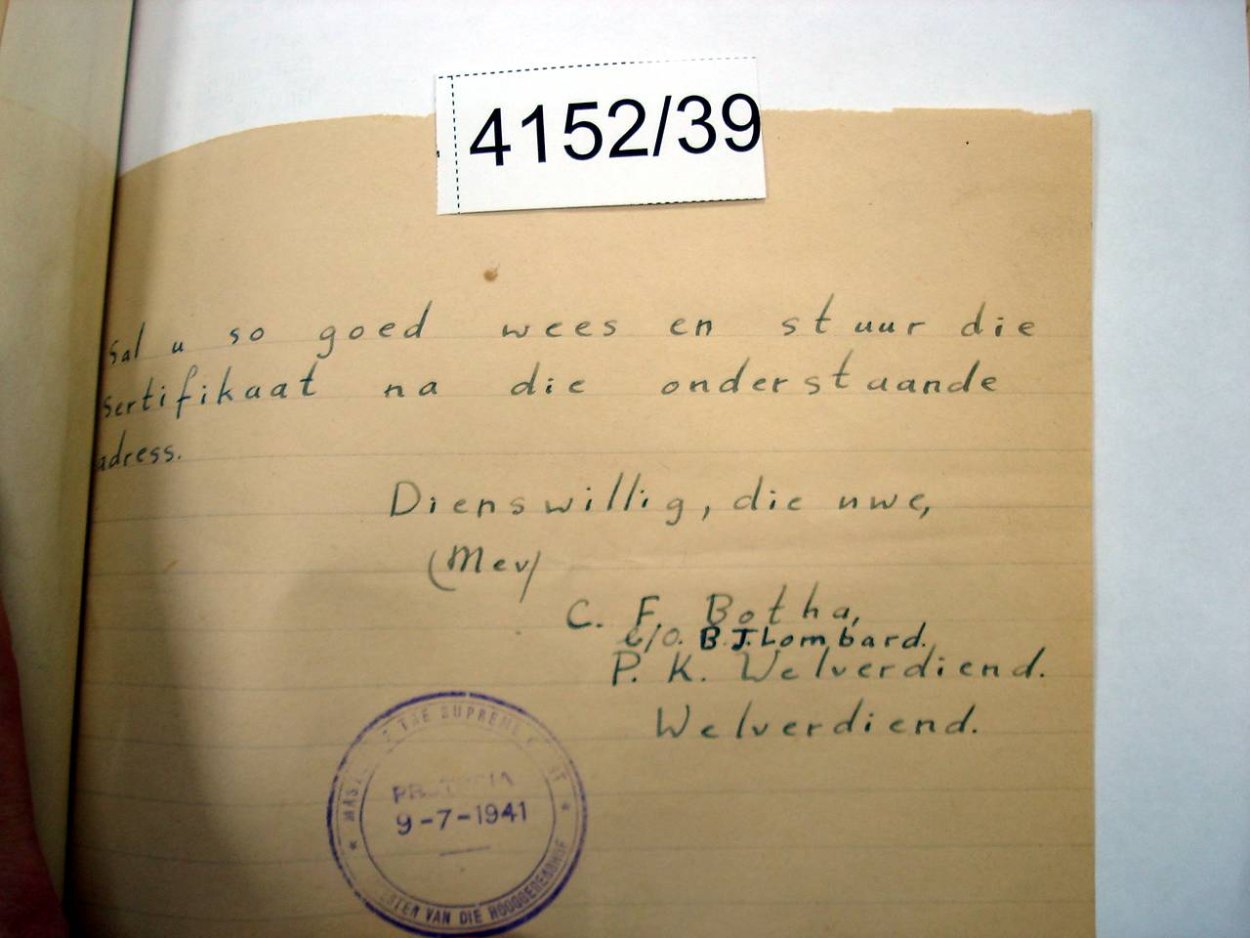 4152/39
Sal u so goed wees en stuur die
sertifikaat na die onderstaande
adress.
Dienswillig, die uwe,
(Mev)
C. F. Botha,
c/o. B.J. Lombard.
P. K. Welverdiend.
Welverdiend.
THE SUPREME
9-7-1941
VAN DIE HOOGGEREGSHOF